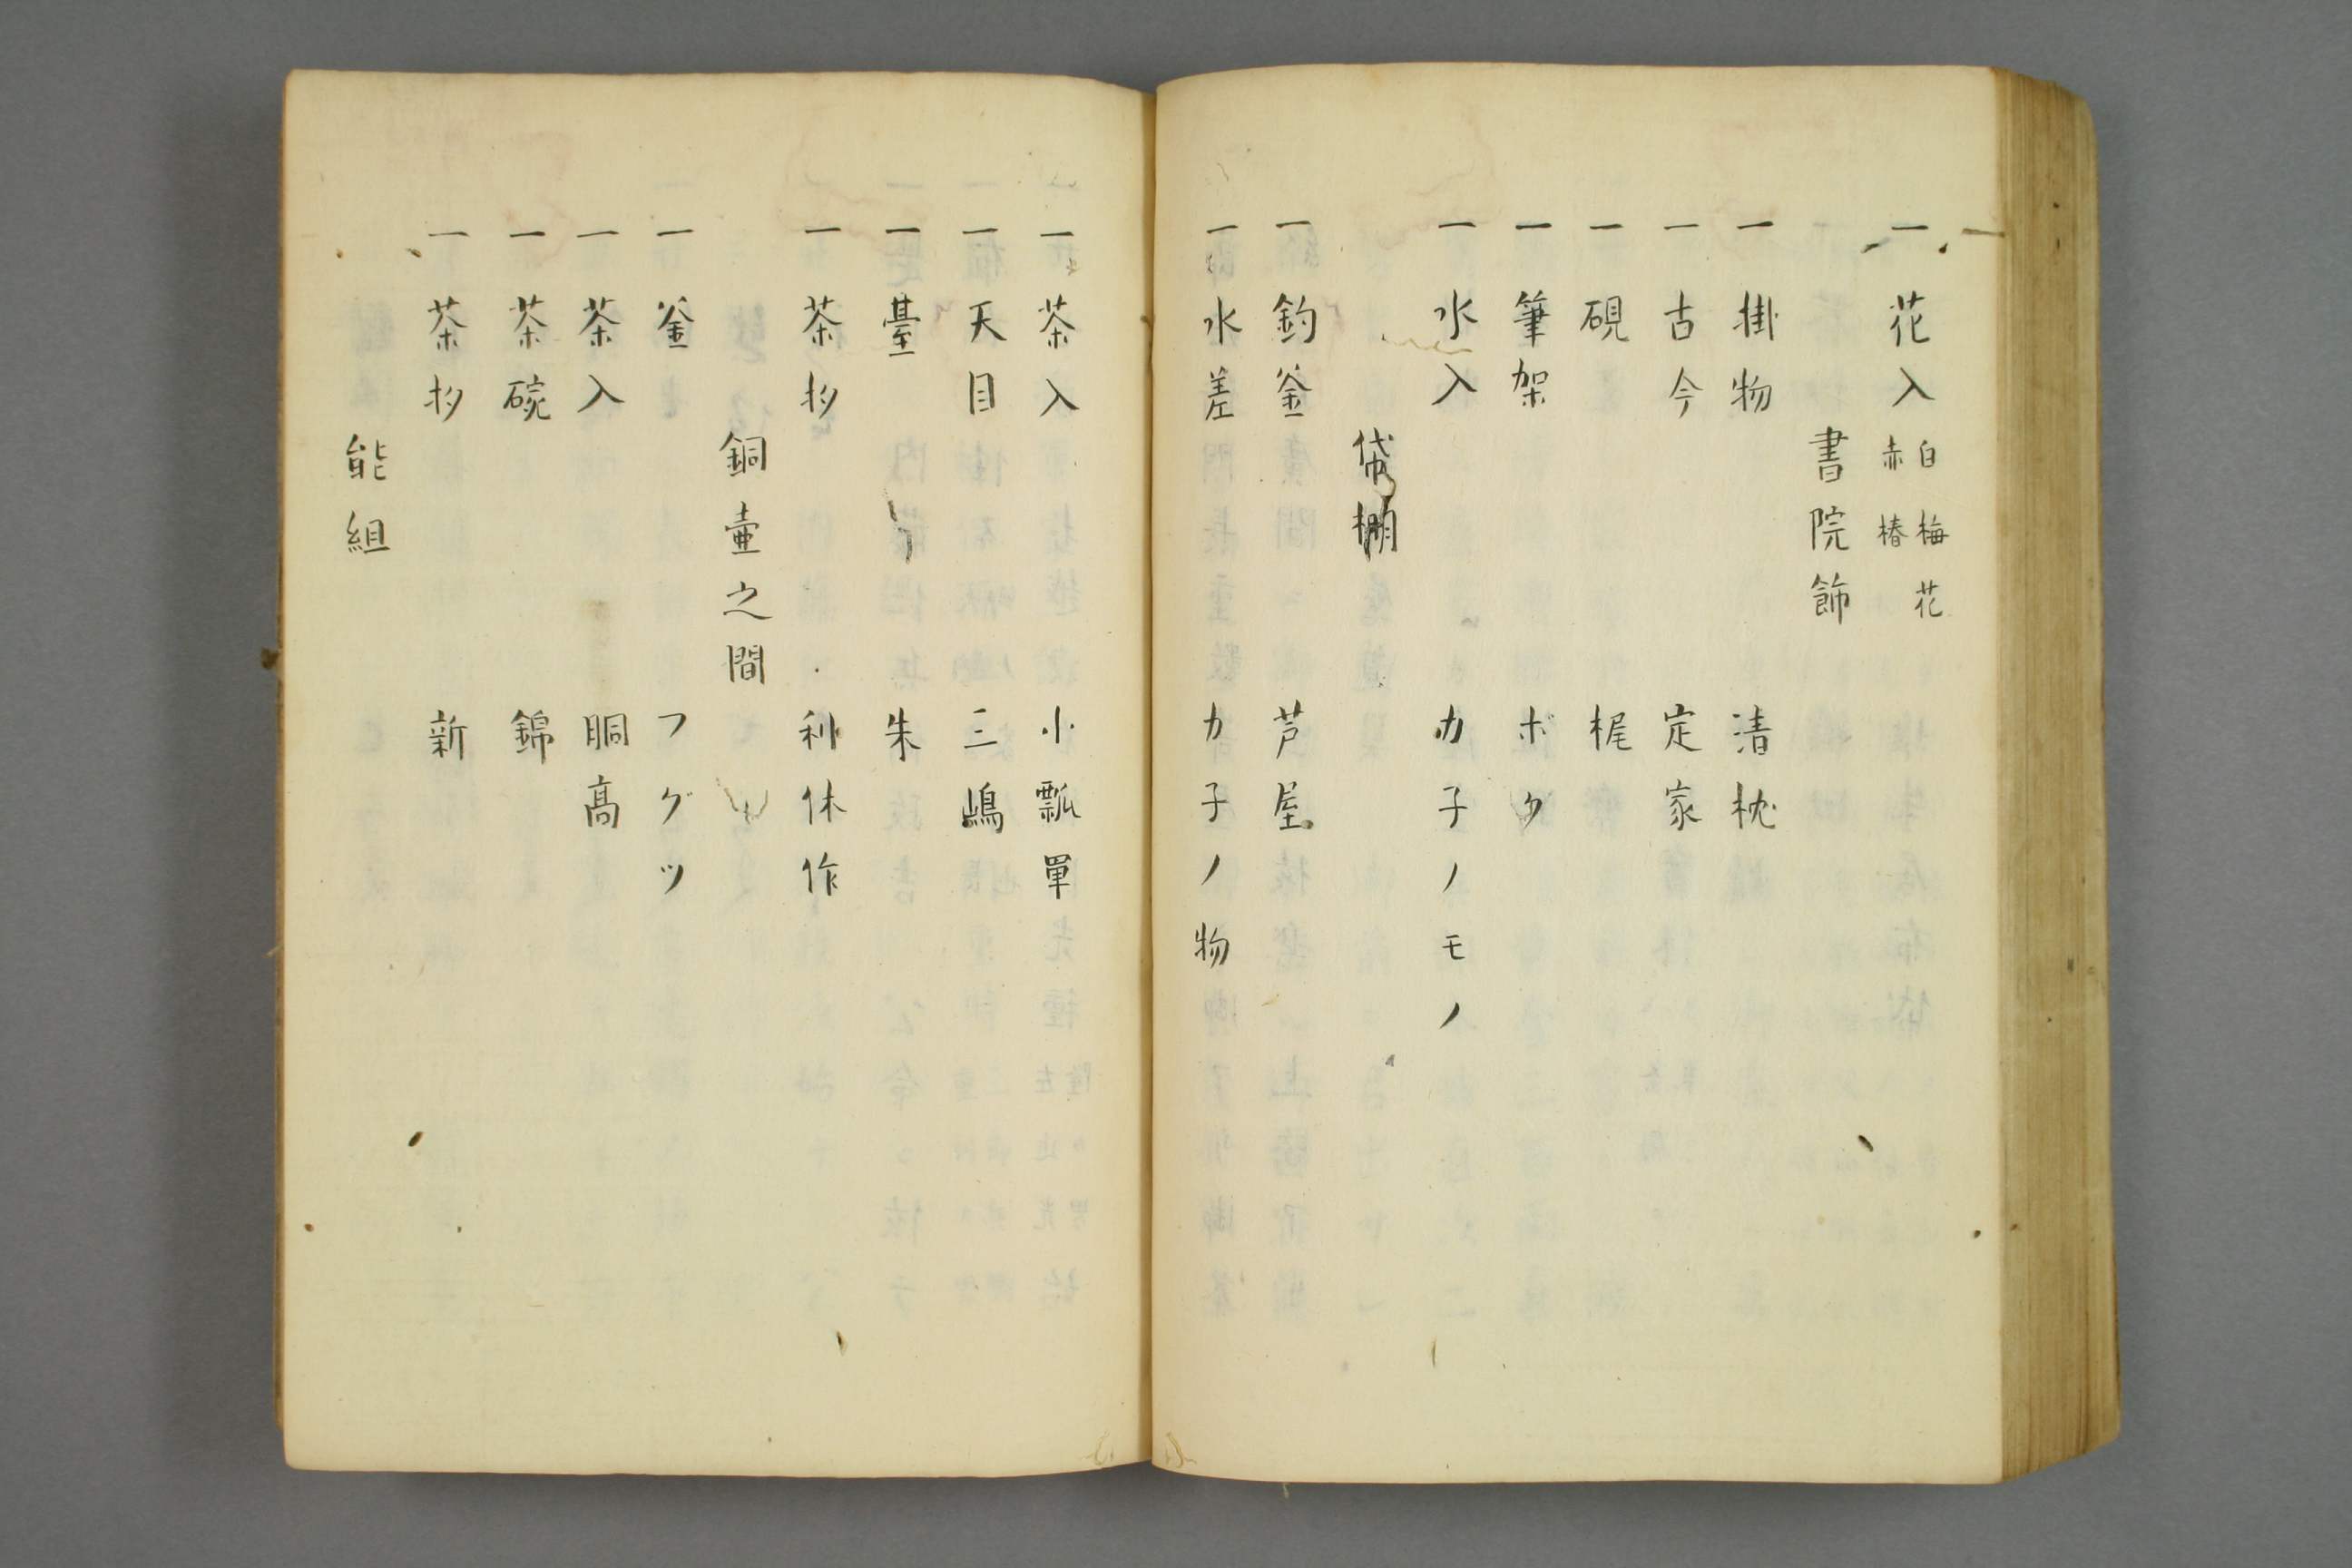 一花入 白梅花 赤椿
書院飾
一掛物 清枕
一古今 定家
一硯 梶
一筆架 ボク
一水入 カ子ノモノ
袋棚
一釣釜 芦屋
一水差 カ子ノ物
一茶入 小瓢箪
一天目 三嶋
一臺 朱
一茶杉 利休作
銅壷之間
一釜 フグツ
一茶入 胴高
一茶碗 錦
一茶杉 新
能組